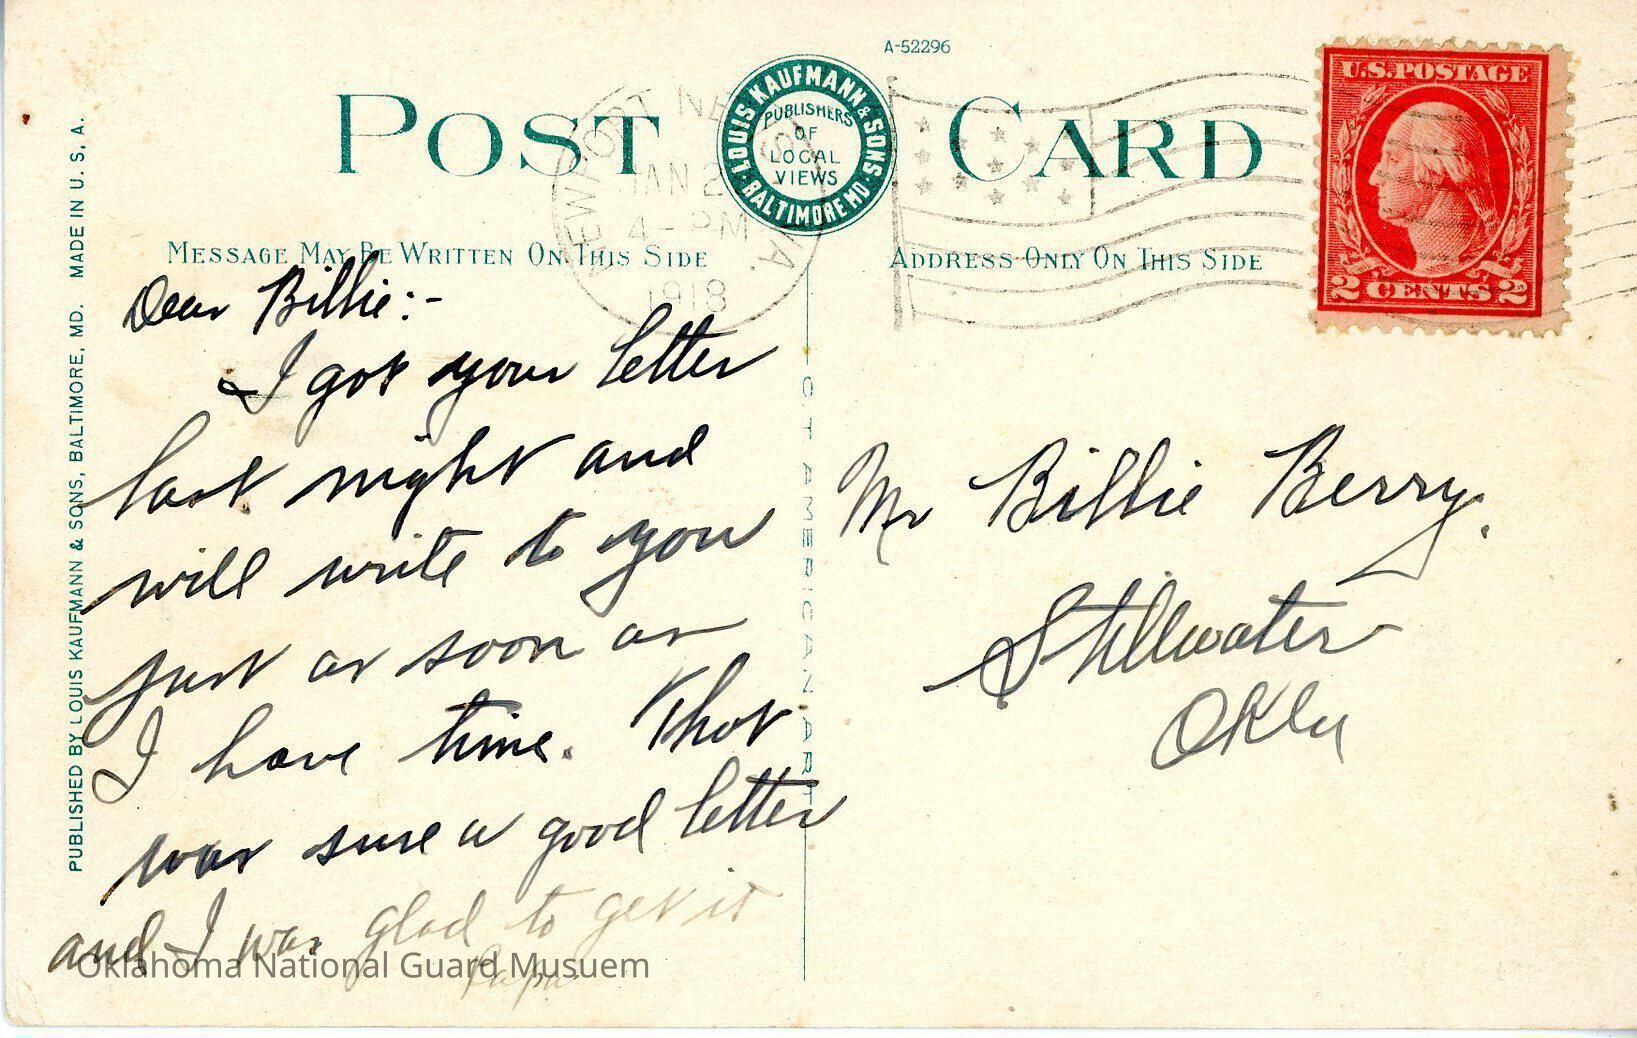 A-52296
POST CARD
LOUIS KAUFMANN & SONS
PUBLISHERS
OF
LOCAL
VIEWS
BALTIMORE MD.
NEWPORT NE
JAN 2
4-PM
1918
VA.
U.S. POSTAGE
2 CENTS 2
MESSAGE MAY BE WRITTEN ON THIS SIDE
ADDRESS ONLY ON THIS SIDE
PUBLISHED BY LOUIS KAUFMANN & SONS, BALTIMORE, MD. MADE IN U. S. A.
Dear Billie:-
I got your letter
last night and
will write to you
just as soon as
I have time. That
was sure a good letter
and I was glad to get it
Papa
CT AMERICAN ART
Mr Billie Berry.
Stillwater
Okla
Oklahoma National Guard Musuem